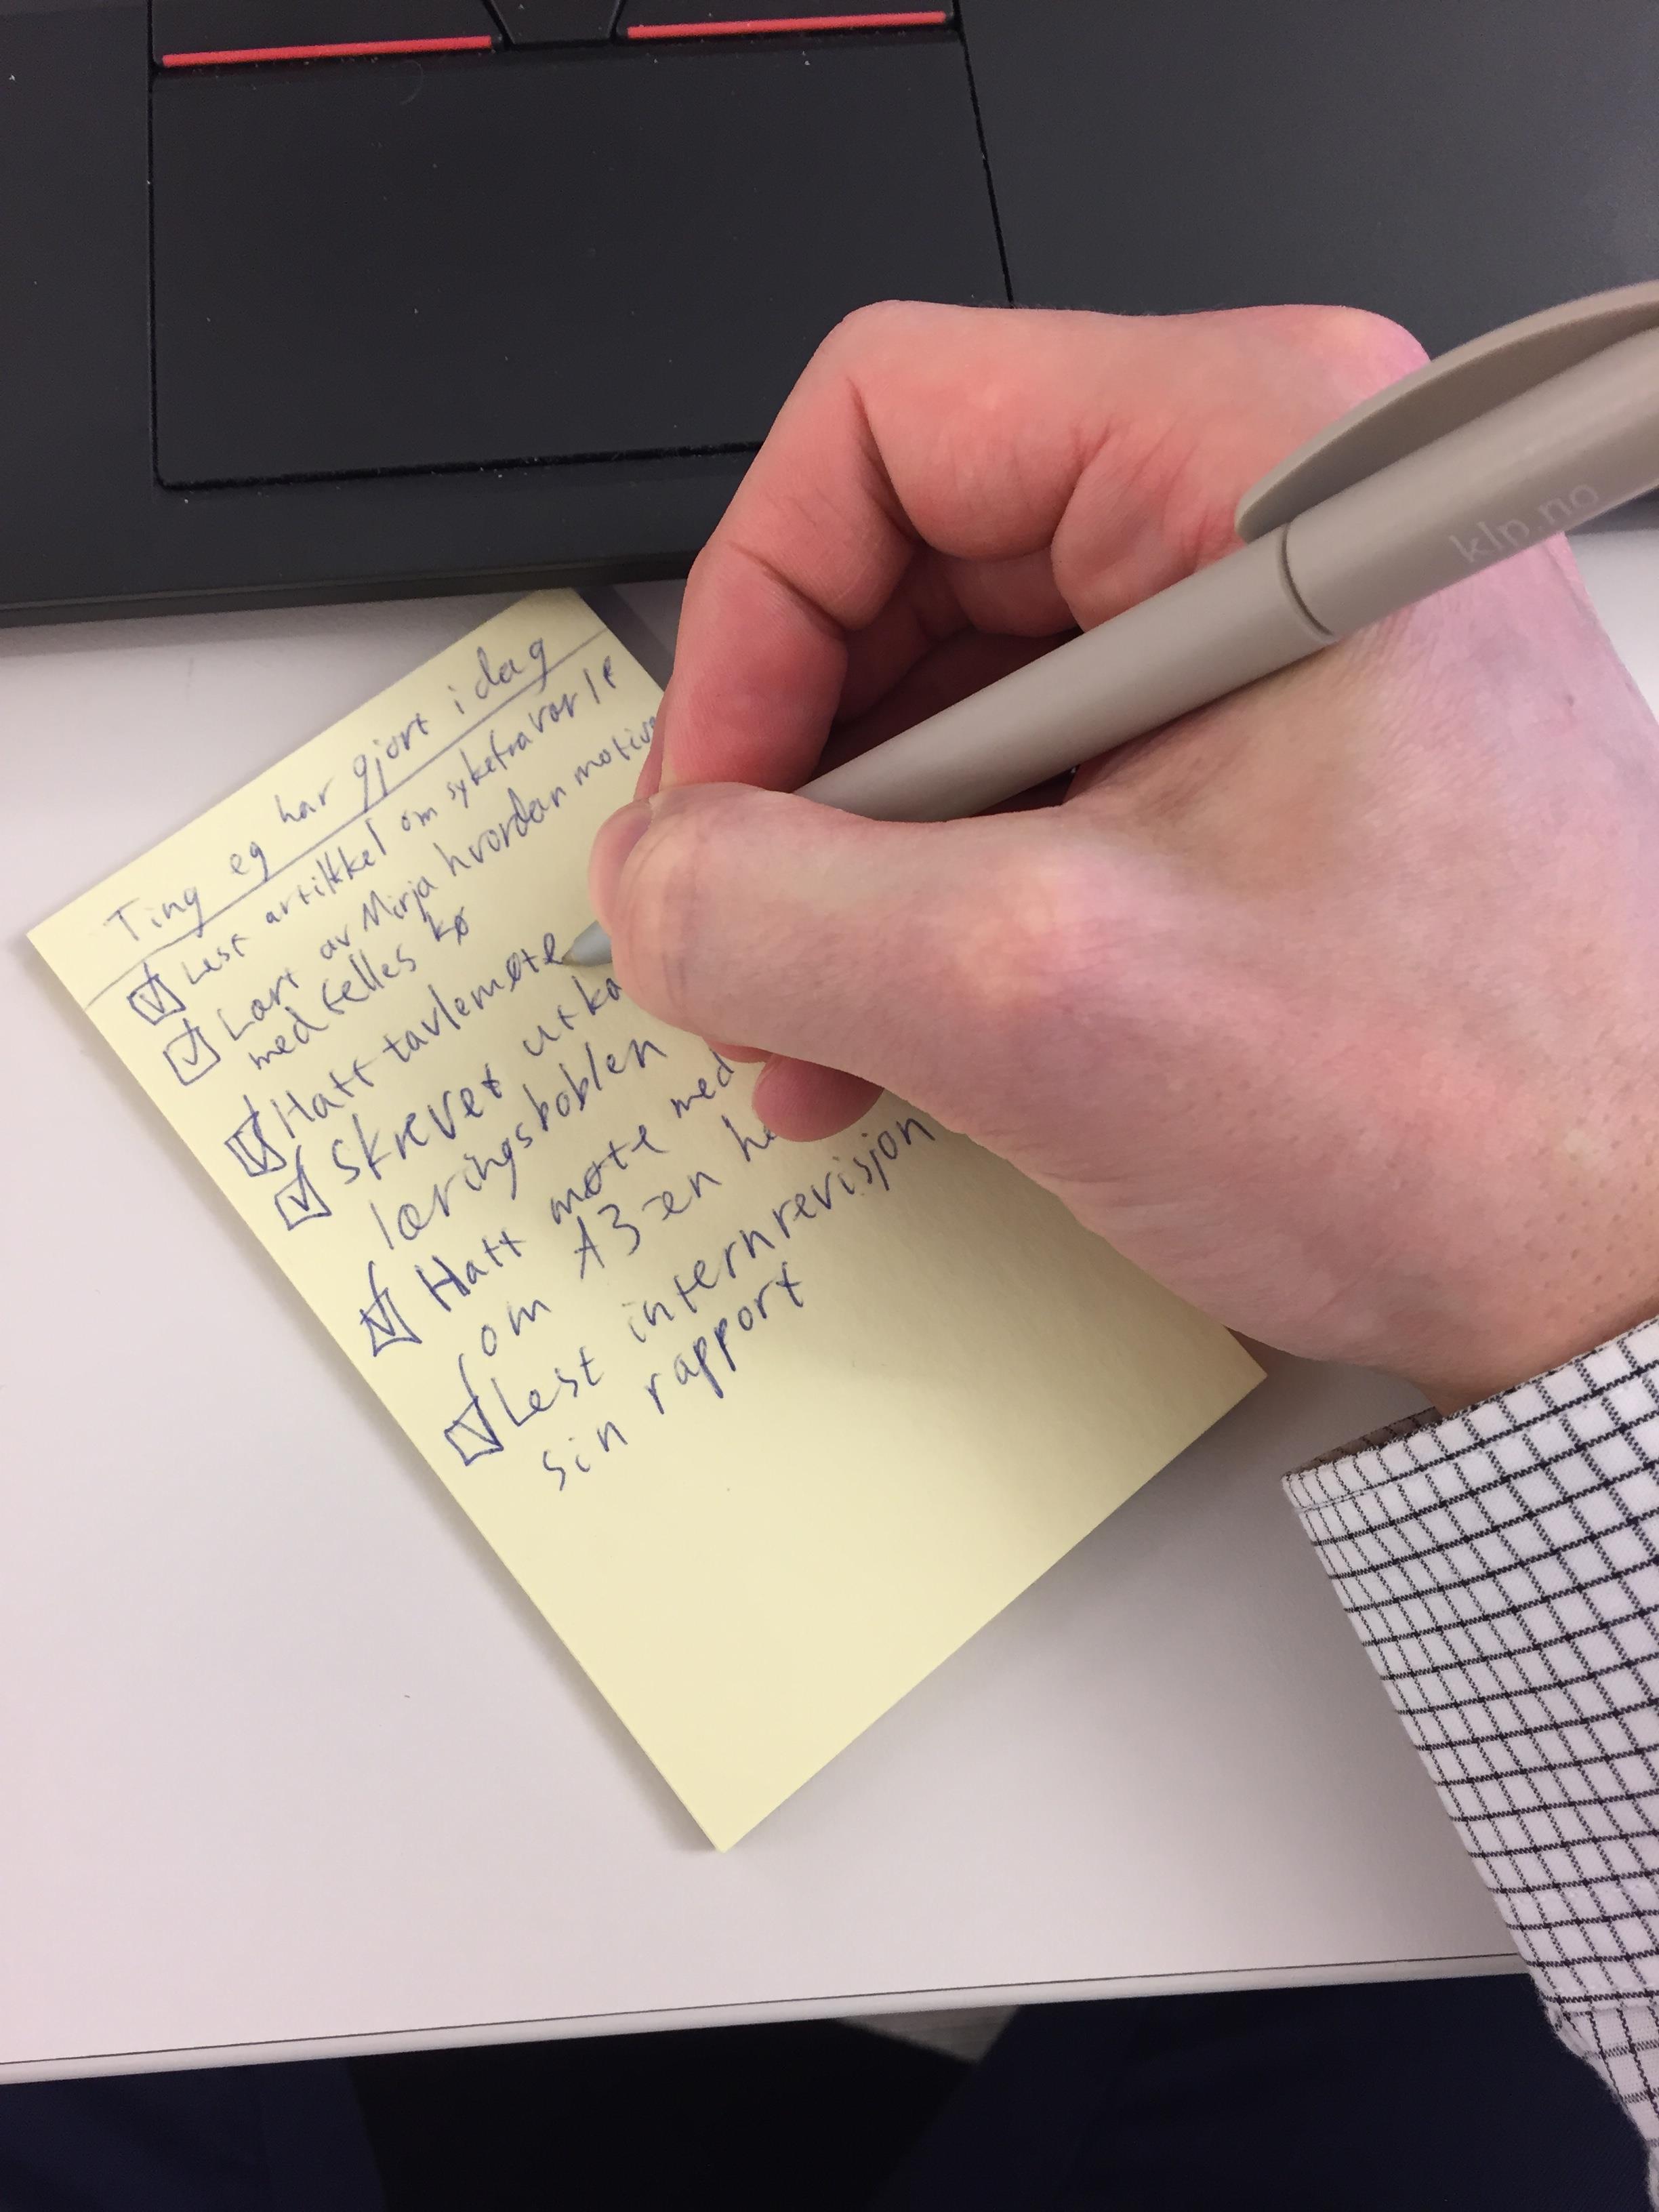 Ting eg har gjort i dag
Lest artikkel om sykefravær
Lært av Mirja hvordan
med felles kø
Hatt tavlemøte
Skrevet
læringsboblen
Hatt møte med
om A3-en
Lest internrevisjon
sin rapport
klp.no